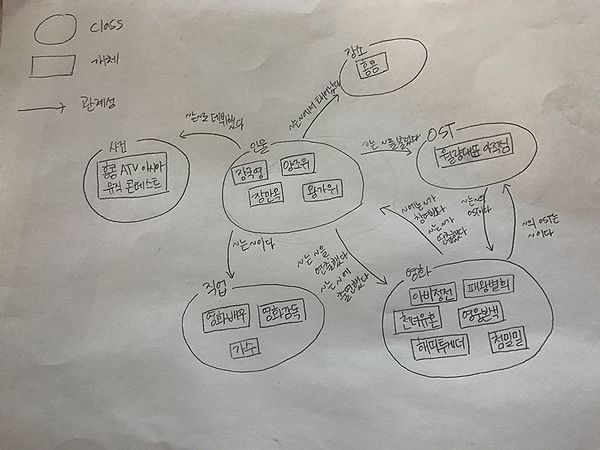 Class
개체
관계성
장소
홍콩
~는 ~에서 태어났다
~는 ~로 데뷔했다
사건
홍콩 ATV 아시아
뮤직 콘테스트
인물
장국영
양조위
장만옥
왕가위
~는 ~를 불렀다
OST
월량대표아적심
~는 ~이다
직업
영화배우
영화감독
가수
~는 ~을
연출했다
~는 ~에
출연했다
~에는 ~가
~는 ~가
연출했다
~는 ~의
OST다
~의 OST는
~이다
영화
아비정전
패왕별희
천녀유혼
영웅본색
해피투게더
첨밀밀